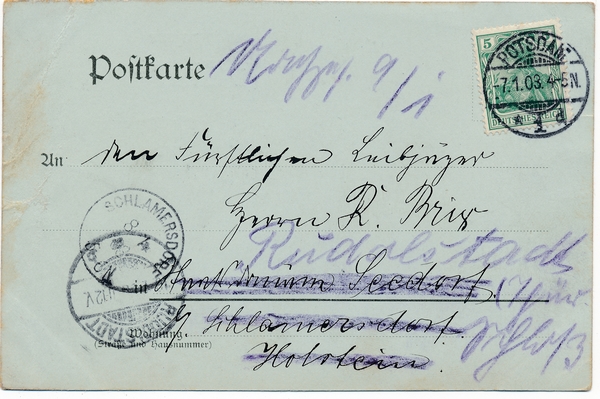 Postkarte
5
DEUTSCHES REICH
POTSDAM
-7.1.03. 4-5N.
1
An den Fürstlichen Leibjäger
Herrn R.
SCHLAMERSDORF
8
Rudolstadt
Seedorf
(Thür.
in
Schlamersdorf
Schloß
RUDOLSTADT
Wohnung
(Straße und Hausnummer)
Holstein.